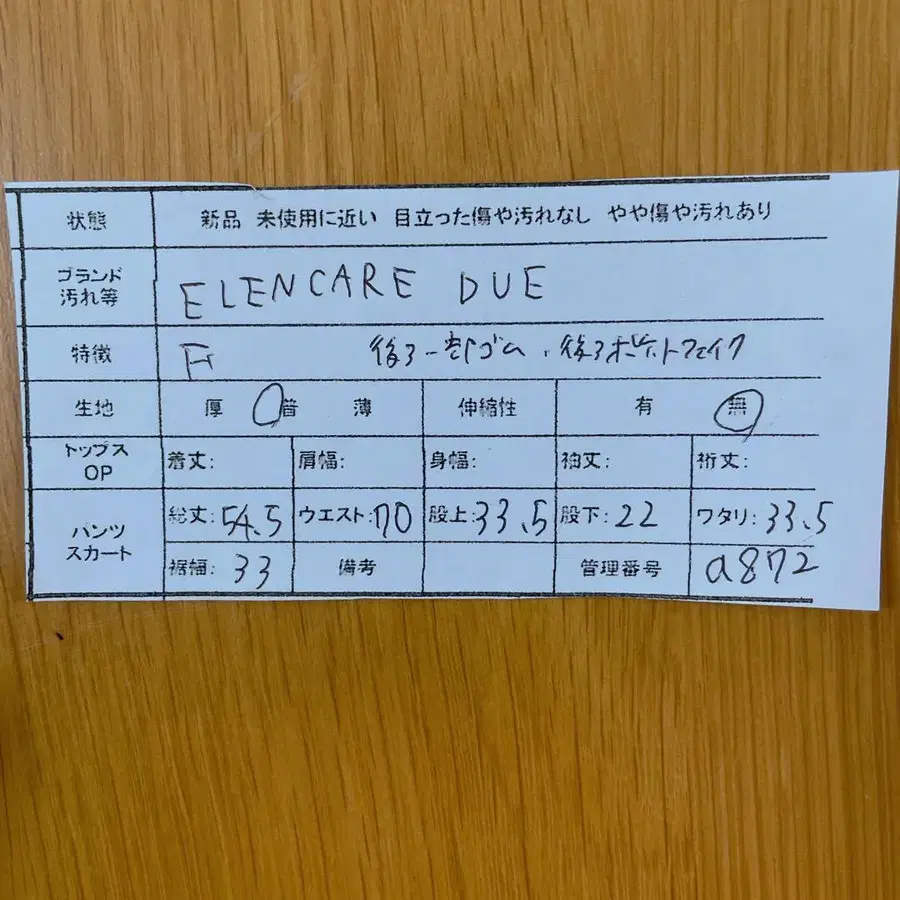 状態 新品 未使用に近い 目立った傷や汚れなし やや傷や汚れあり
ブランド
汚れ等 ELENCARE DUE
特徴 F 後ろ一部ゴム、後ろポケットフェイク
生地 厚 普 薄 伸縮性 有 無
トップス
OP 着丈: 肩幅: 身幅: 袖丈: 裄丈:
パンツ
スカート 総丈:54.5 ウエスト:70 股上:33.5 股下:22 ワタリ:33.5
裾幅:33 備考 管理番号 a872